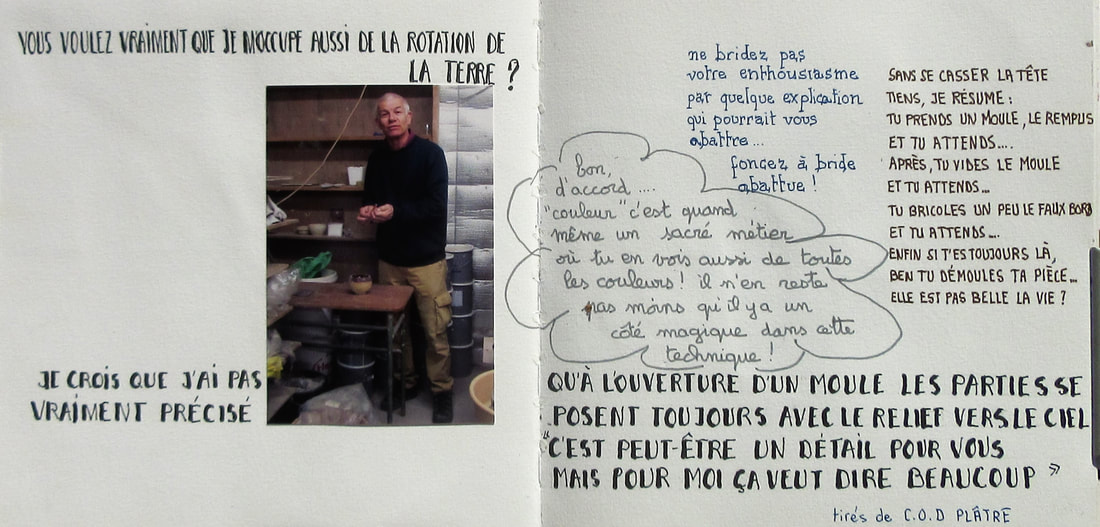 VOUS VOULEZ VRAIMENT QUE JE M'OCCUPE AUSSI DE LA ROTATION DE
LA TERRE ?
JE CROIS QUE J'AI PAS
VRAIMENT PRÉCISÉ
ne bridez pas
votre enthousiasme
par quelque explication
qui pourrait vous
abattre...
foncez à bride
abattue !
bon,
d'accord ....
"couleur" c'est quand
même un sacré métier
où tu en vois aussi de toutes
les couleurs ! il n'en reste
pas moins qu'il y a un
côté magique dans cette
technique !
SANS SE CASSER LA TÊTE
TIENS, JE RÉSUME :
TU PRENDS UN MOULE, LE REMPLIS
ET TU ATTENDS....
APRÈS, TU VIDES LE MOULE
ET TU ATTENDS...
TU BRICOLES UN PEU LE FAUX BORD
ET TU ATTENDS....
ENFIN SI T'ES TOUJOURS LÀ,
BEN TU DÉMOULES TA PIÈCE...
ELLE EST PAS BELLE LA VIE ?
QU'À L'OUVERTURE D'UN MOULE LES PARTIES SE
POSENT TOUJOURS AVEC LE RELIEF VERS LE CIEL
"C'EST PEUT-ÊTRE UN DÉTAIL POUR VOUS
MAIS POUR MOI ÇA VEUT DIRE BEAUCOUP "
tirés de C.O.D PLÂTRE